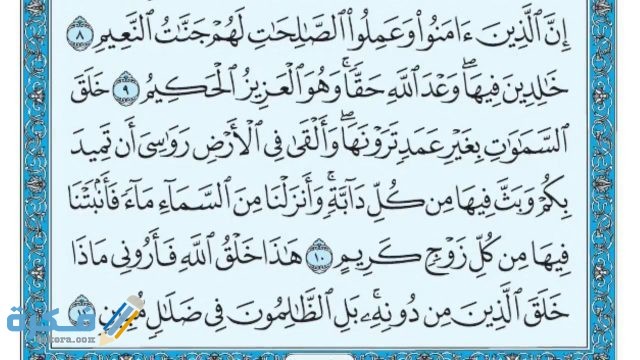 إِنَّ ٱلَّذِينَ ءَامَنُوا۟ وَعَمِلُوا۟ ٱلصَّٰلِحَٰتِ لَهُمْ جَنَّٰتُ ٱلنَّعِيمِ ٨
خَٰلِدِينَ فِيهَا ۖ وَعْدَ ٱللَّهِ حَقًّا ۚ وَهُوَ ٱلْعَزِيزُ ٱلْحَكِيمُ ٩ خَلَقَ
ٱلسَّمَٰوَٰتِ بِغَيْرِ عَمَدٍ تَرَوْنَهَا ۖ وَأَلْقَىٰ فِى ٱلْأَرْضِ رَوَٰسِىَ أَن تَمِيدَ
بِكُمْ وَبَثَّ فِيهَا مِن كُلِّ دَآبَّةٍ ۚ وَأَنزَلْنَا مِنَ ٱلسَّمَآءِ مَآءً فَأَنۢبَتْنَا
فِيهَا مِن كُلِّ زَوْجٍ كَرِيمٍ ١٠ هَٰذَا خَلْقُ ٱللَّهِ فَأَرُونِى مَاذَا
خَلَقَ ٱلَّذِينَ مِن دُونِهِۦ ۚ بَلِ ٱلظَّٰلِمُونَ فِى ضَلَٰلٍ مُّبِينٍ ١١
فكرة